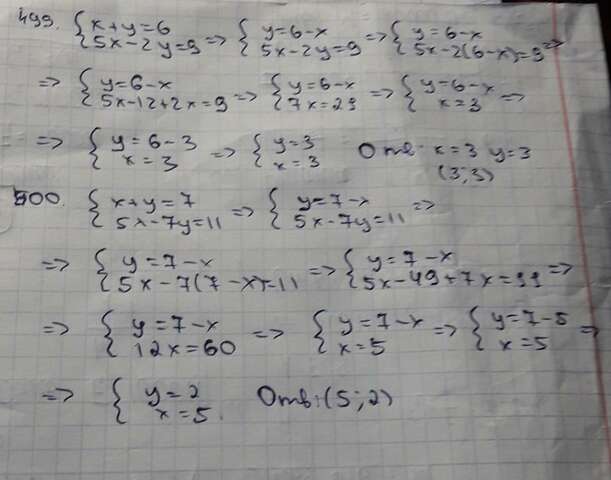 499. { x+y=6 5x-2y=9 => { y=6-x 5x-2y=9 => { y=6-x 5x-2(6-x)=9 =>
=> { y=6-x 5x-12+2x=9 => { y=6-x 7x=21 => { y=6-x x=3 =>
=> { y=6-3 x=3 => { y=3 x=3 Отв: x=3 y=3
(3;3)
500. { x+y=7 5x-7y=11 => { y=7-x 5x-7y=11 =>
=> { y=7-x 5x-7(7-x)=11 => { y=7-x 5x-49+7x=11 =>
=> { y=7-x 12x=60 => { y=7-x x=5 => { y=7-5 x=5 =>
=> { y=2 x=5. Отв:(5;2)